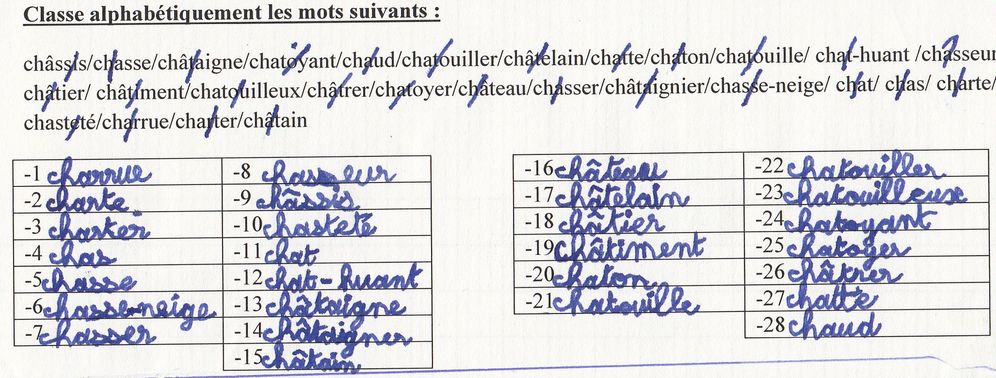 Classe alphabétiquement les mots suivants :
châssis/chasse/châtaigne/chatoyant/chaud/chatouiller/châtelain/chatte/chaton/chatouille/ chat-huant /chasseur
châtier/ châtiment/chatouilleux/châtrer/chatoyer/château/chasser/châtaignier/chasse-neige/ chat/ chas/ charte/
chasteté/charrue/charter/châtain
-1 charrue
-2 charte
-3 charter
-4 chas
-5 chasse
-6 chasse-neige
-7 chasser
-8 chasseur
-9 châssis
-10 chasteté
-11 chat
-12 chat-huant
-13 châtaigne
-14 châtaigner
-15 châtain
-16 château
-17 châtelain
-18 châtier
-19 châtiment
-20 chaton
-21 chatouille
-22 chatouiller
-23 chatouilleux
-24 chatoyant
-25 chatoyer
-26 châtrer
-27 chatte
-28 chaud